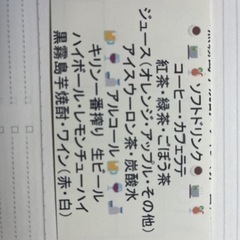 ソフトドリンク
コーヒー・カフェラテ
紅茶・緑茶・ごぼう茶
ジュース(オレンジ・アップル・その他)
アイスウーロン茶 炭酸水
アルコール
キリン一番搾り 生ビール
ハイボール・レモンチューハイ
黒霧島芋焼酎・ワイン(赤・白)